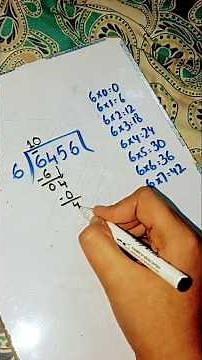 10
6)6456(
-6
04
-0
4
6x0=0
6x1=6
6x2=12
6x3=18
6x4=24
6x5=30
6x6=36
6x7=42